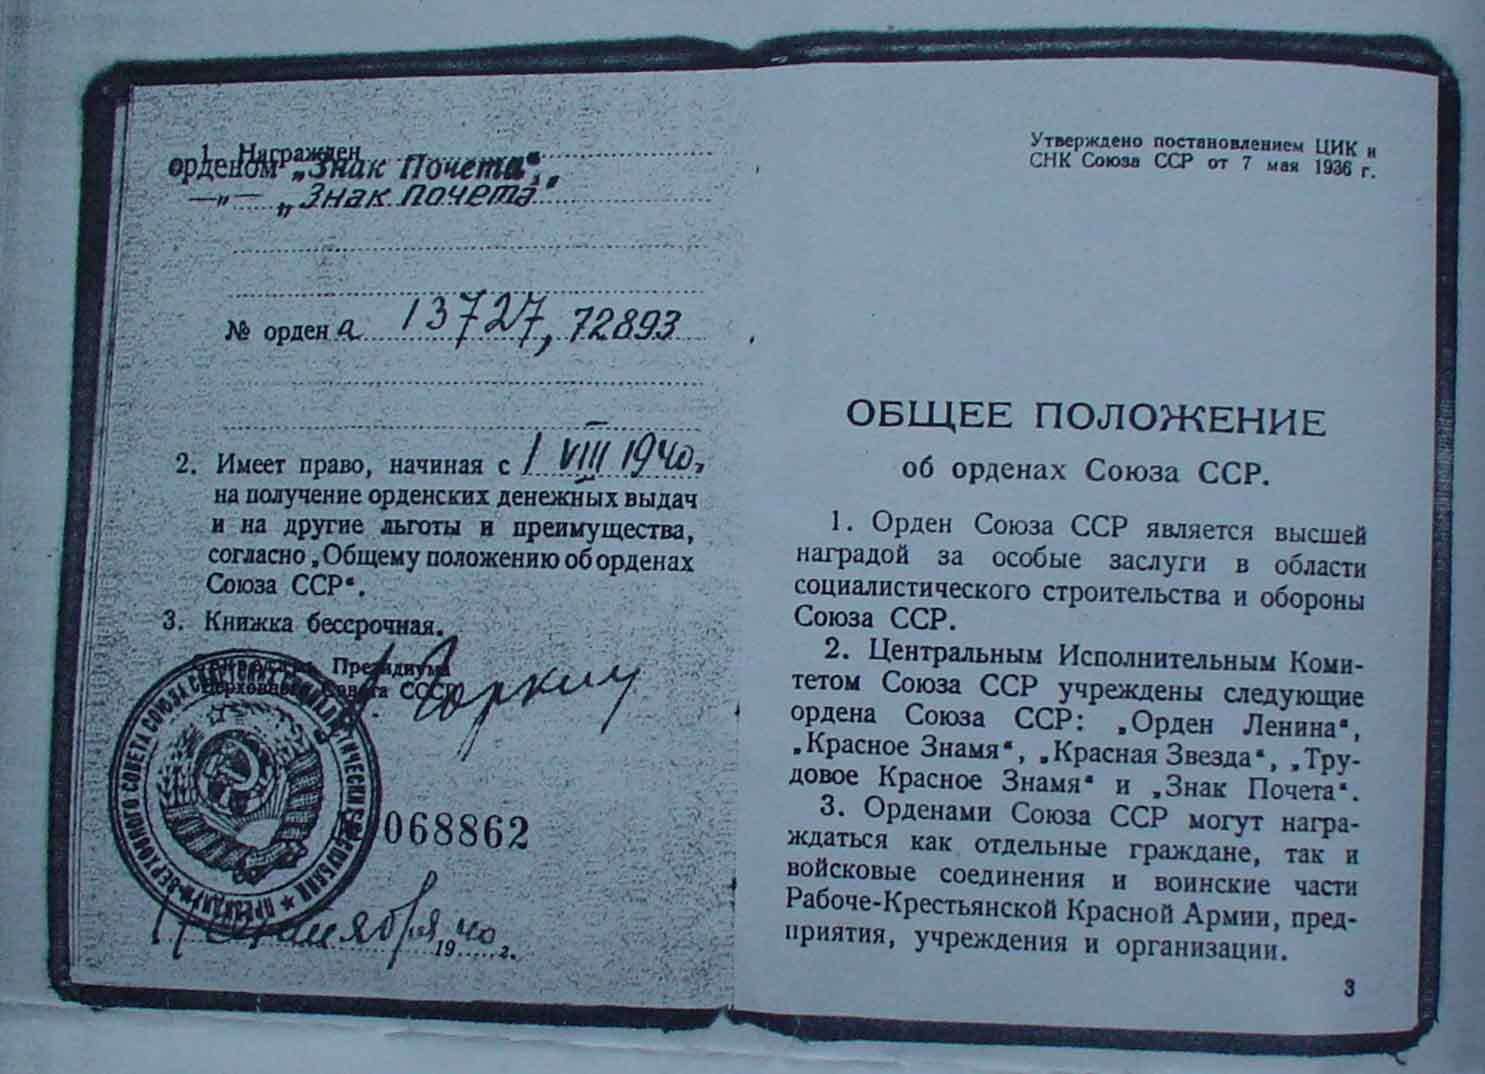 1. Награжден
орденом „Знак Почета“,
—„— „Знак почета“
№ ордена 13727, 72893
2. Имеет право, начиная с 1 VIII 1940,
на получение орденских денежных выдач
и на другие льготы и преимущества,
согласно „Общему положению об орденах
Союза ССР“.
3. Книжка бессрочная.
Секретарь Президиума
Верховного Совета СССР
А. Горкин
ПРЕЗИДИУМ ВЕРХОВНОГО СОВЕТА СОЮЗА СОВЕТСКИХ СОЦИАЛИСТИЧЕСКИХ РЕСПУБЛИК
068862
сентября 1940 г.
Утверждено постановлением ЦИК и
СНК Союза ССР от 7 мая 1936 г.
ОБЩЕЕ ПОЛОЖЕНИЕ
об орденах Союза ССР.
1. Орден Союза ССР является высшей
наградой за особые заслуги в области
социалистического строительства и обороны
Союза ССР.
2. Центральным Исполнительным Коми-
тетом Союза ССР учреждены следующие
ордена Союза ССР: „Орден Ленина“,
„Красное Знамя“, „Красная Звезда“, „Тру-
довое Красное Знамя“ и „Знак Почета“.
3. Орденами Союза ССР могут награ-
ждаться как отдельные граждане, так и
войсковые соединения и воинские части
Рабоче-Крестьянской Красной Армии, пред-
приятия, учреждения и организации.
3